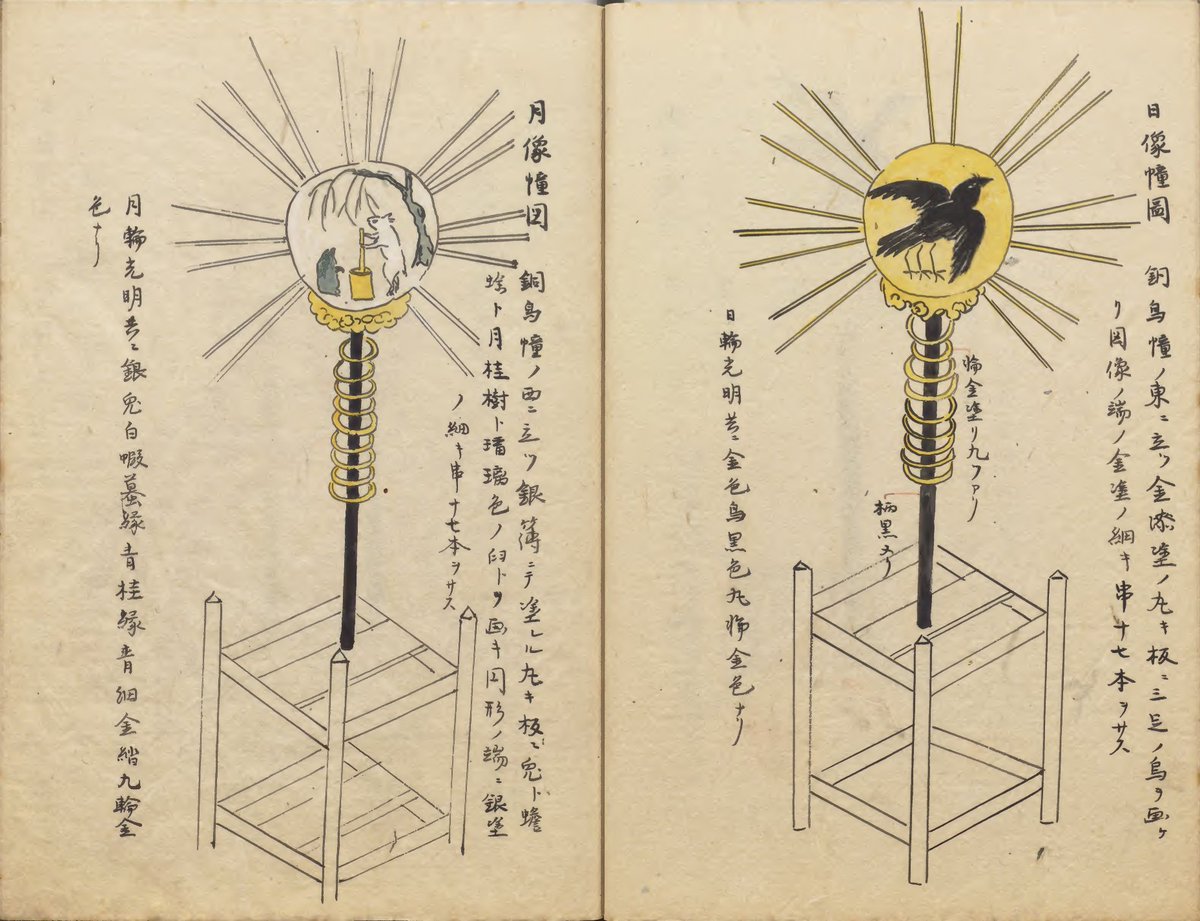 日像幢圖
銅烏幢ノ東ニ立ツ金漆塗ノ丸キ板ニ三足ノ烏ヲ画ケ
リ円像ノ端ノ金塗ノ細キ串十七本ヲサス
輪金塗リ九ツアリ
柄黒ヌリ
日輪光明共ニ金色烏黒色九輪金色ナリ
月像幢図
銅烏幢ノ西ニ立ツ銀簿ニテ塗レル丸キ板ニ兎ト蟾
蜍ト月桂樹ト璠璃色ノ臼トヲ画キ円形ノ端ニ銀塗
ノ細キ串十七本ヲサス
月輪光明共ニ銀兎白蝦蟇緑青桂緑青細金九輪金
色ナリ